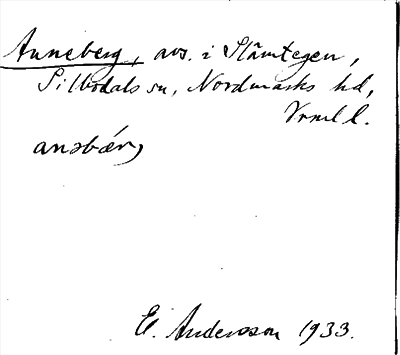 Anneberg, avs. i Slämtegen,
Silbodals sn, Nordmarks hd,
Vrml l.
anəbær,
E. Andersson 1933.